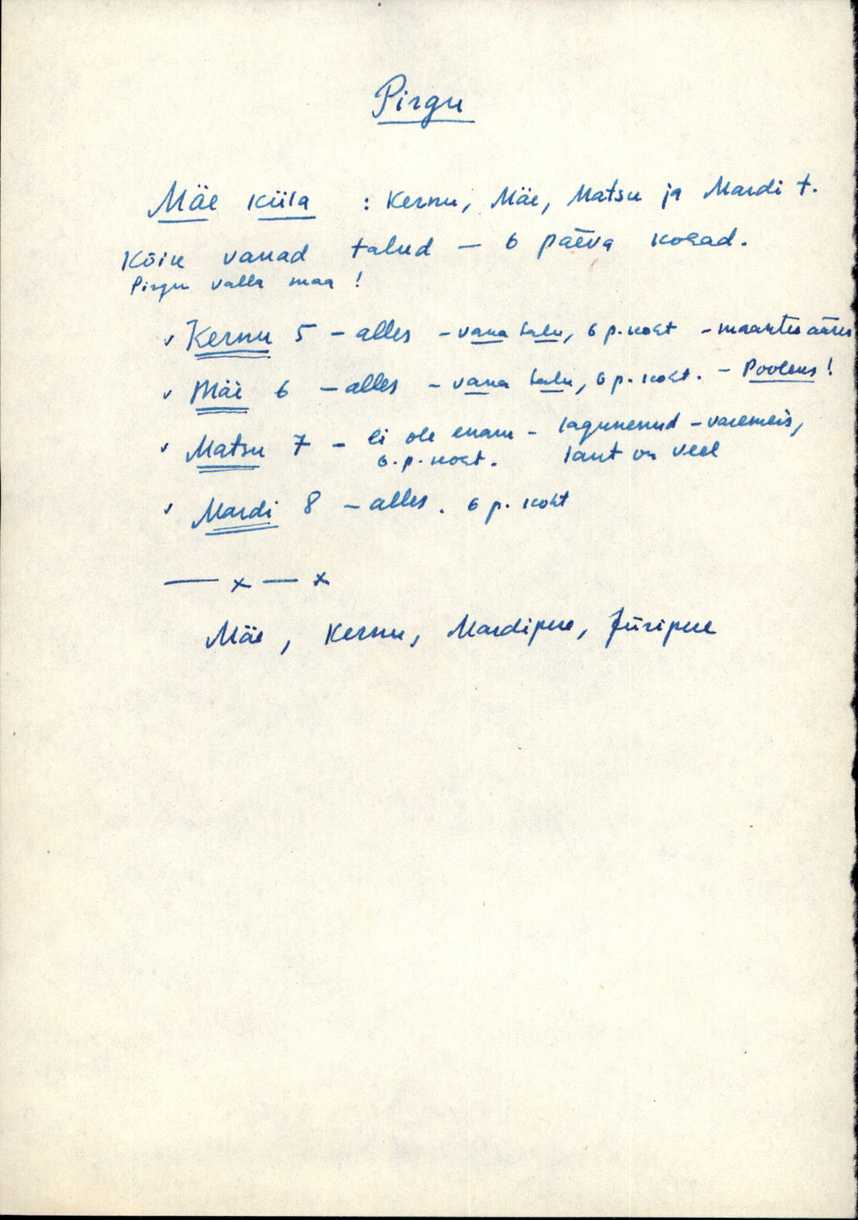 Pirgu
Mäe küla : Kernu, Mäe, Matsu ja Mardi t.
Kõik vanad talud – 6 päeva kohad.
Pirgu valla maa !
✓ Kernu 5 – alles – vana talu, 6 p. koht – maantee ääres
✓ Mäe 6 – alles – vana talu, 6 p. koht. – Pooleks !
✓ Matsu 7 – ei ole enam – lagunenud – varemeis,
6. p. koht. laut on veel
✓ Mardi 8 – alles. 6 p. koht
— x — x
Mäe, Kernu, Mardipere, Jüripere